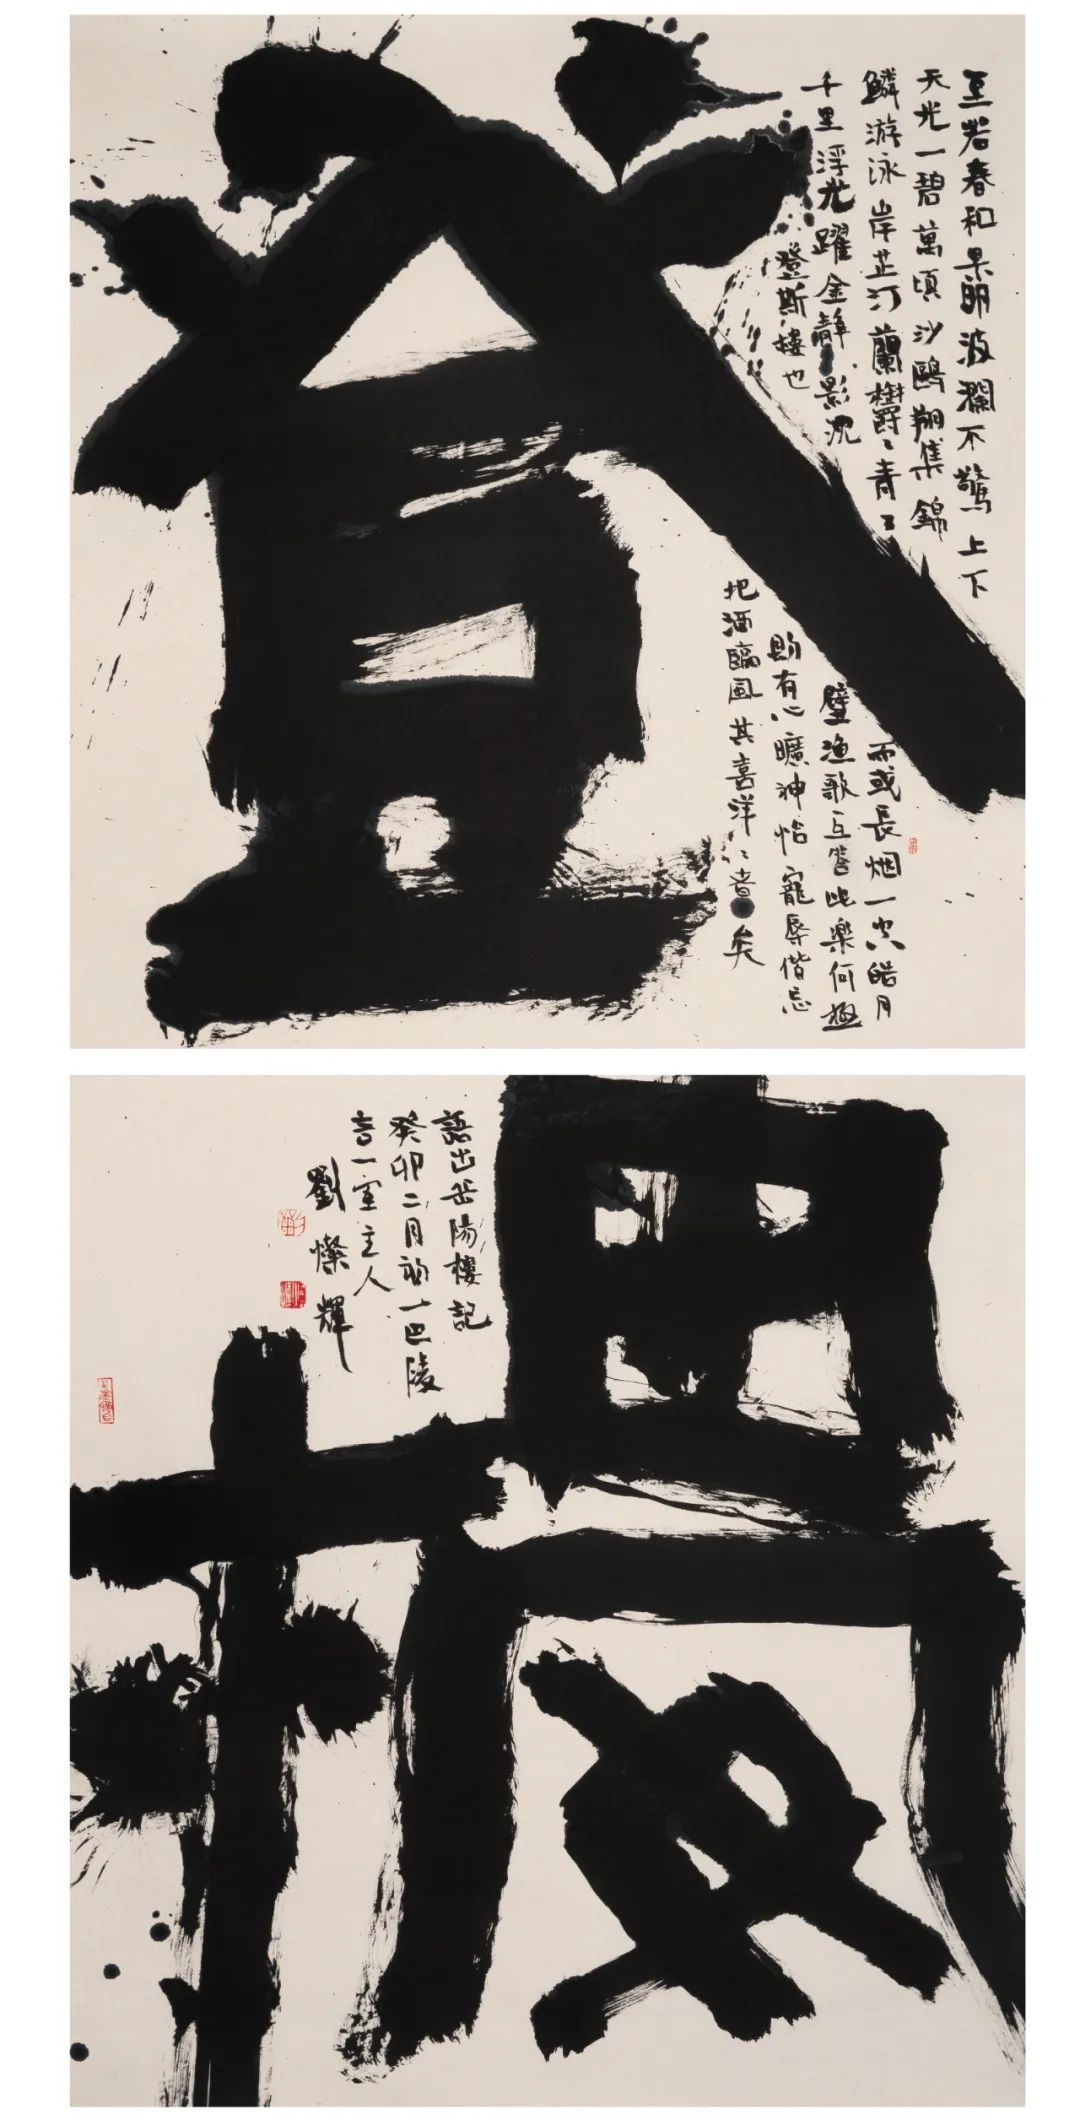 登
至若春和景明波瀾不驚上下
天光一碧萬頃沙鷗翔集錦
鱗游泳岸芷汀蘭欝々青々
而或長烟一空皓月
千里浮光躍金靜影沉
璧漁歌互答此樂何極
登斯樓也
則有心曠神怡寵辱偕忘
把酒臨風其喜洋々者矣
樓
語出岳陽樓記
癸卯二月初一巴陵
言一室主人
劉燦輝